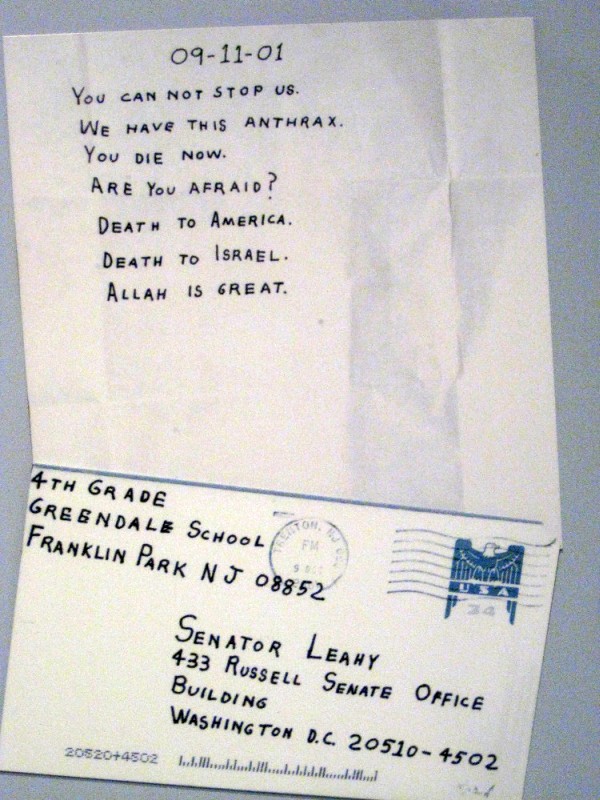 09-11-01
YOU CAN NOT STOP US.
WE HAVE THIS ANTHRAX.
YOU DIE NOW.
ARE YOU AFRAID?
DEATH TO AMERICA.
DEATH TO ISRAEL.
ALLAH IS GREAT.
4TH GRADE
GREENDALE SCHOOL
FRANKLIN PARK NJ 08852
TRENTON, NJ
PM
USA
34
SENATOR LEAHY
433 RUSSELL SENATE OFFICE
BUILDING
WASHINGTON D.C. 20510-4502
20520+4502